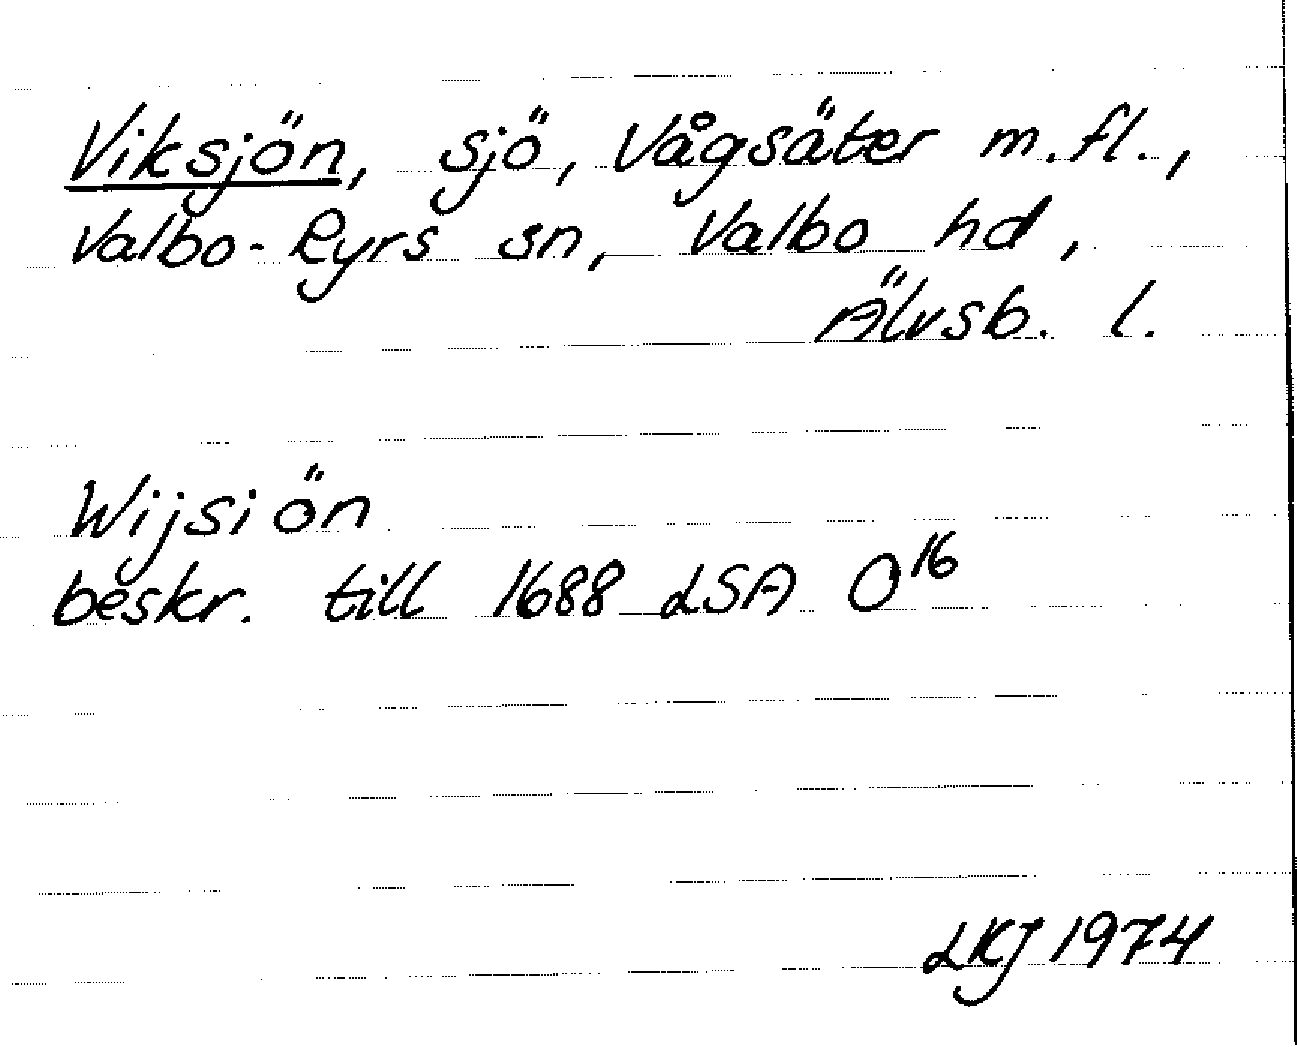 Viksjön, sjö, Vågsäter m.fl.,
Valbo-Ryrs sn, Valbo hd,
Älvsb. l.
Wijsiön
beskr. till 1688 LSA O16
LKJ 1974